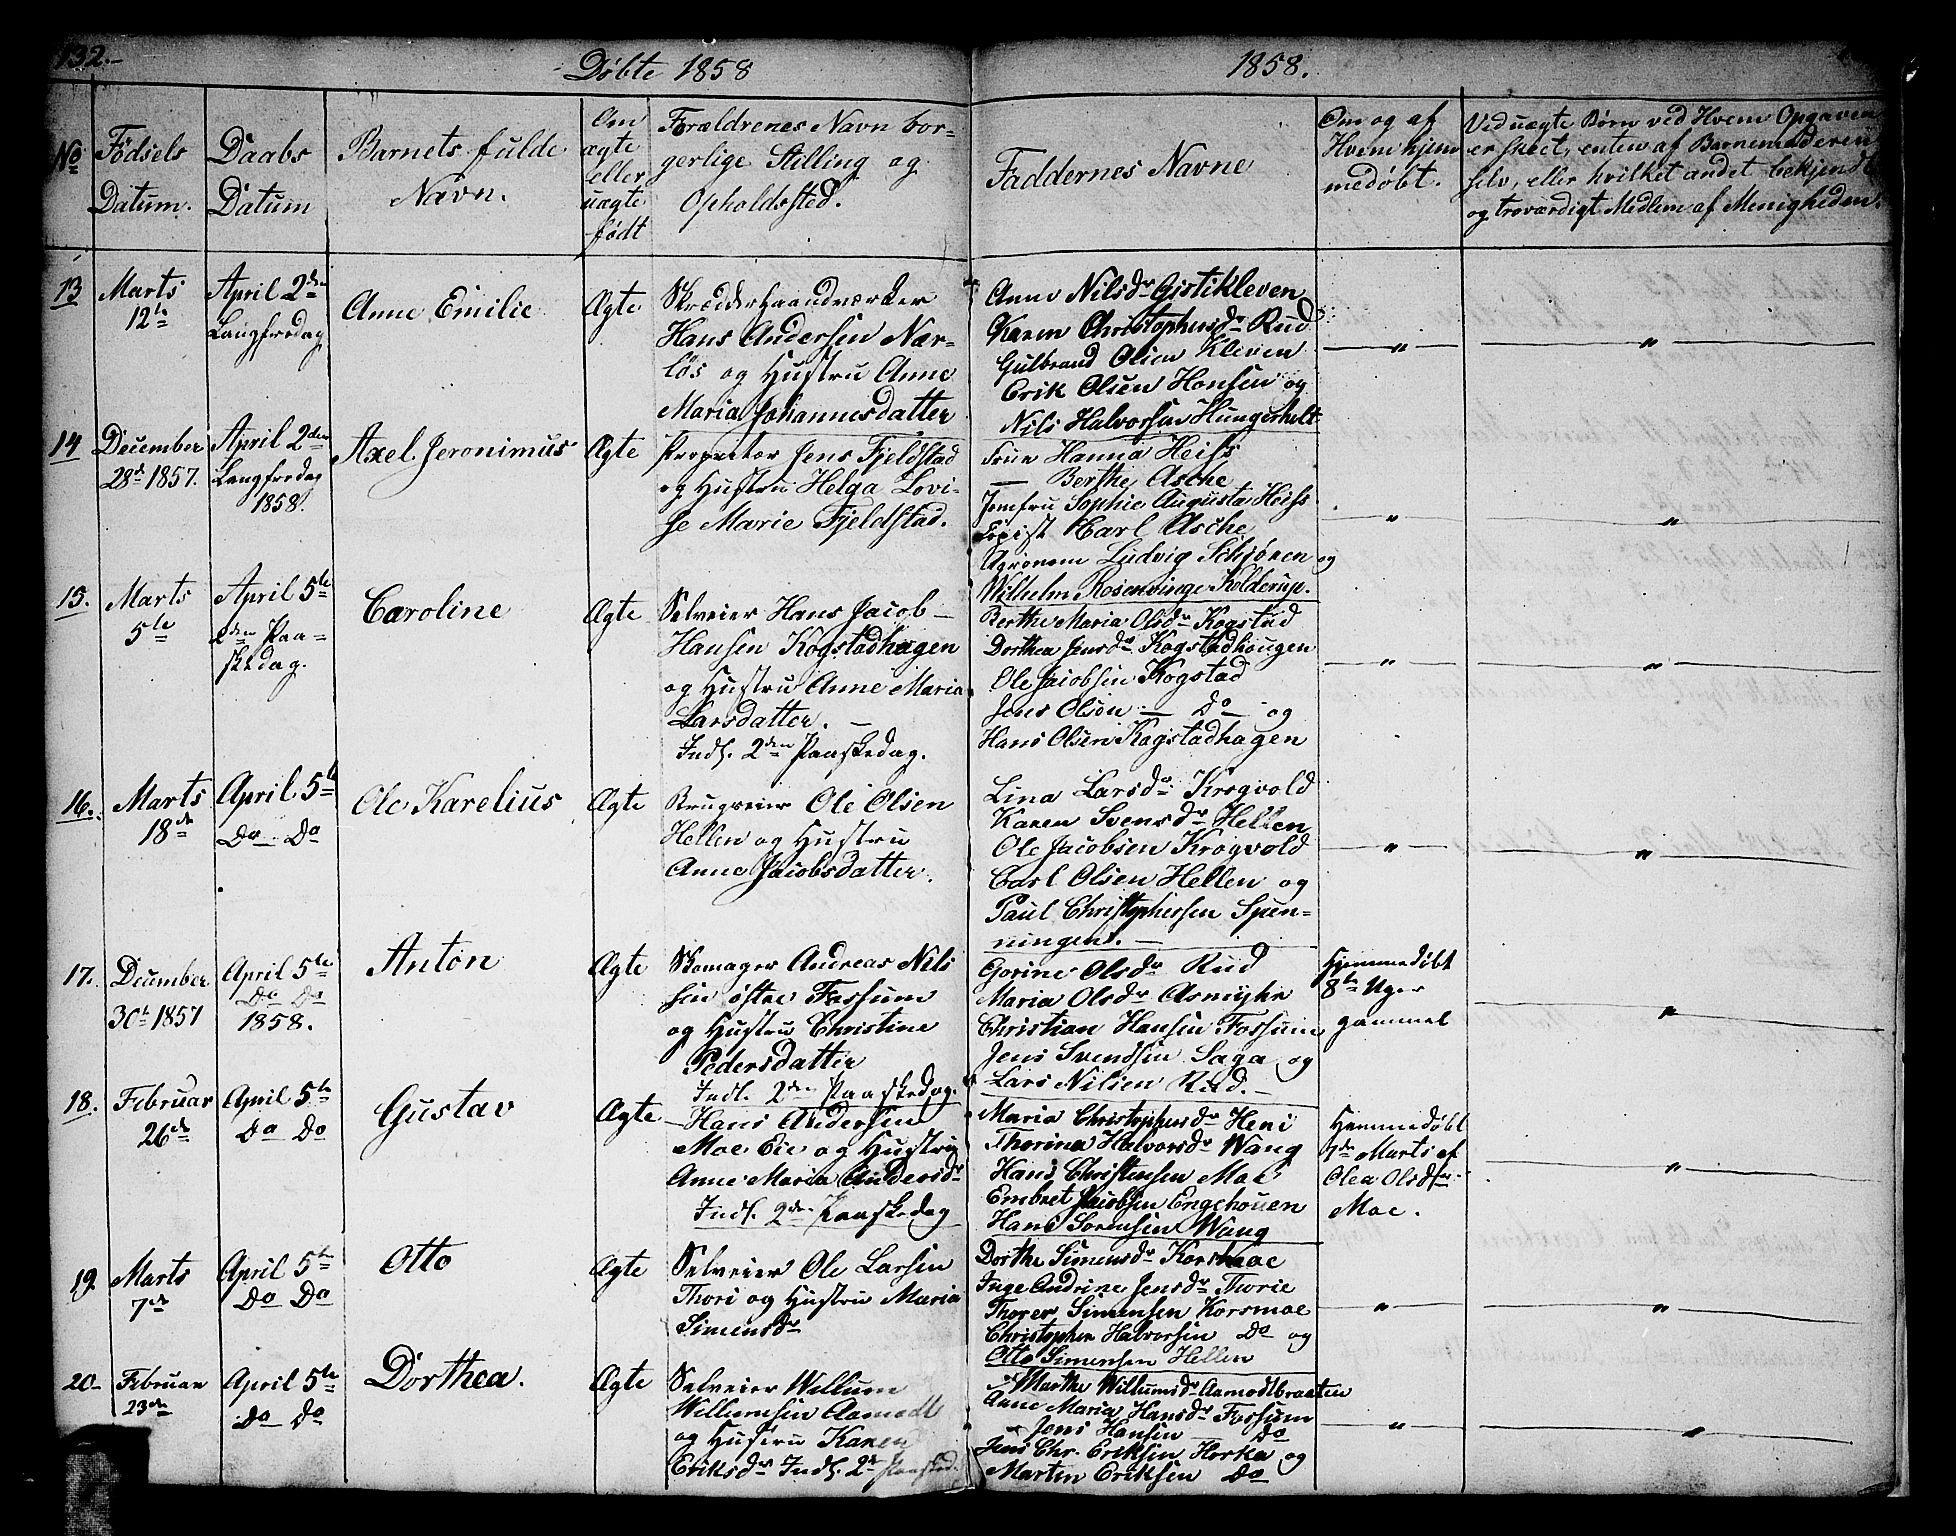 132.
Døbte 1858
1858.
No
Fødsels
Datum.
Daabs
Datum
Barnets fulde
Navn.
Om
ægte
eller
uægte
født
Forældrenes Navn bor-
gerlige Stilling og
Opholdssted.
Faddernes Navne
Om og af
Hvem hjem
medøbt.
Ved uægte Børn ved Hvem Opgaven
er skeet, enten af Barnemoderen
selv, eller hvilket andet bekjendt
og troværdigt Medlem af Menigheden.
13
Marts
12te
April 2den
Langfredag
Anne Emilie
Ægte
Skrædderhaandværker
Hans Andersen Nær-
løs og Hustru Anne
Maria Johannesdatter
Anne Nilsdr Gistikleven
Karen Christophersdr Rud
Gulbrand Olsen Kleven
Erik Olsen Honsen og
Nils Halvorsen Hungerholt
— " —
— " —
14
December
28de 1857.
April 2den
Langfredag
1858.
Axel Jeronimus
Ægte
Proprietær Jens Fjeldstad
og Hustru Helga Lovi-
se Marie Fjeldstad.
Frue Hanna Heiss
— Berthe Asche
Jomfru Sophie Augusta Heiss
Copist Carl Asche
Agronom Ludvig Schiønen og
Wilhelm Rosenvinge Kolderup.
— " —
— " —
15.
Marts
5te
April 5te
2den Paa-
skedag.
Caroline
Ægte
Selveier Hans Jacob
Hansen Kogstadhagen
og Hustru Anne Maria
Larsdatter. —
Indl. 2den Paaskedag.
Berthe Maria Olsdr Kogstad
Dorthea Jensdr Kogstadhougen
Ole Jacobsen Kogstad
Jens Olsen — Do — og
Hans Olsen Kogstadhagen
— " —
— " —
16.
Marts
18de
April 5te
Do Do
Ole Karelius
Ægte
Brugseier Ole Olsen
Hellen og Hustru
Anne Jacobsdatter.
Lina Larsdr Krogvold
Karen Svensdr Hellen
Ole Jacobsen Krogvold
Carl Olsen Hellen og
Paul Christophersen Spen=
ningen. —
— " —
— " —
17.
December
30te 1857
April 5te
Do Do
1858.
Anton
Ægte
Skomager Andreas Nils
sen østre Fossum
og Hustru Christine
Pedersdatter
Indl. 2den Paaskedag.
Gorine Olsdr Rud
Maria Olsdr Asmyhr
Christian Hansen Fossum
Jens Svendsen Saga og
Lars Nilsen Rud. —
Hjemmedøbt
8te Uger
gammel
— " —
18.
Februar
26de
April 5te
Do Do
Gustav
Ægte
Hans Andersen
Moe Eie og Hustru
Anne Maria Andersdr
Indl. 2den Paaskedag
Maria Christophersdr Heni
Thorina Halvorsdr Wang
Hans Christensen Moe
Embret Jacobsen Engehouen
Hans Sørensen Wang
Hjemmedøbt
7de Marts af
Olea Olsdtr
Moe.
— " —
19.
Marts
7de
April 5te
Do Do
Otto
Ægte
Selveier Ole Larsen
Thori og Hustru Maria
Simensdr
Dorthe Simensdr Korsmoe
Inge Andrine Jensdr Thorie
Thorer Simensen Korsmoe
Christopher Halvorsen Do og
Otto Simensen Hellen
— " —
— " —
20
Februar
23de
April 5te
Do Do
Dorthea.
Ægte
Selveier Willum
Willumsen Aamodt
og Hustru Karen
Eriksdr Indl. 2d Paasked.
Marthe Willumsdr Aamodtbraaten
Anne Maria Hansdr Fossum
Jens Hansen — Do
Jens Chr. Eriksen Horka og
Martin Eriksen Do
— " —
— " —